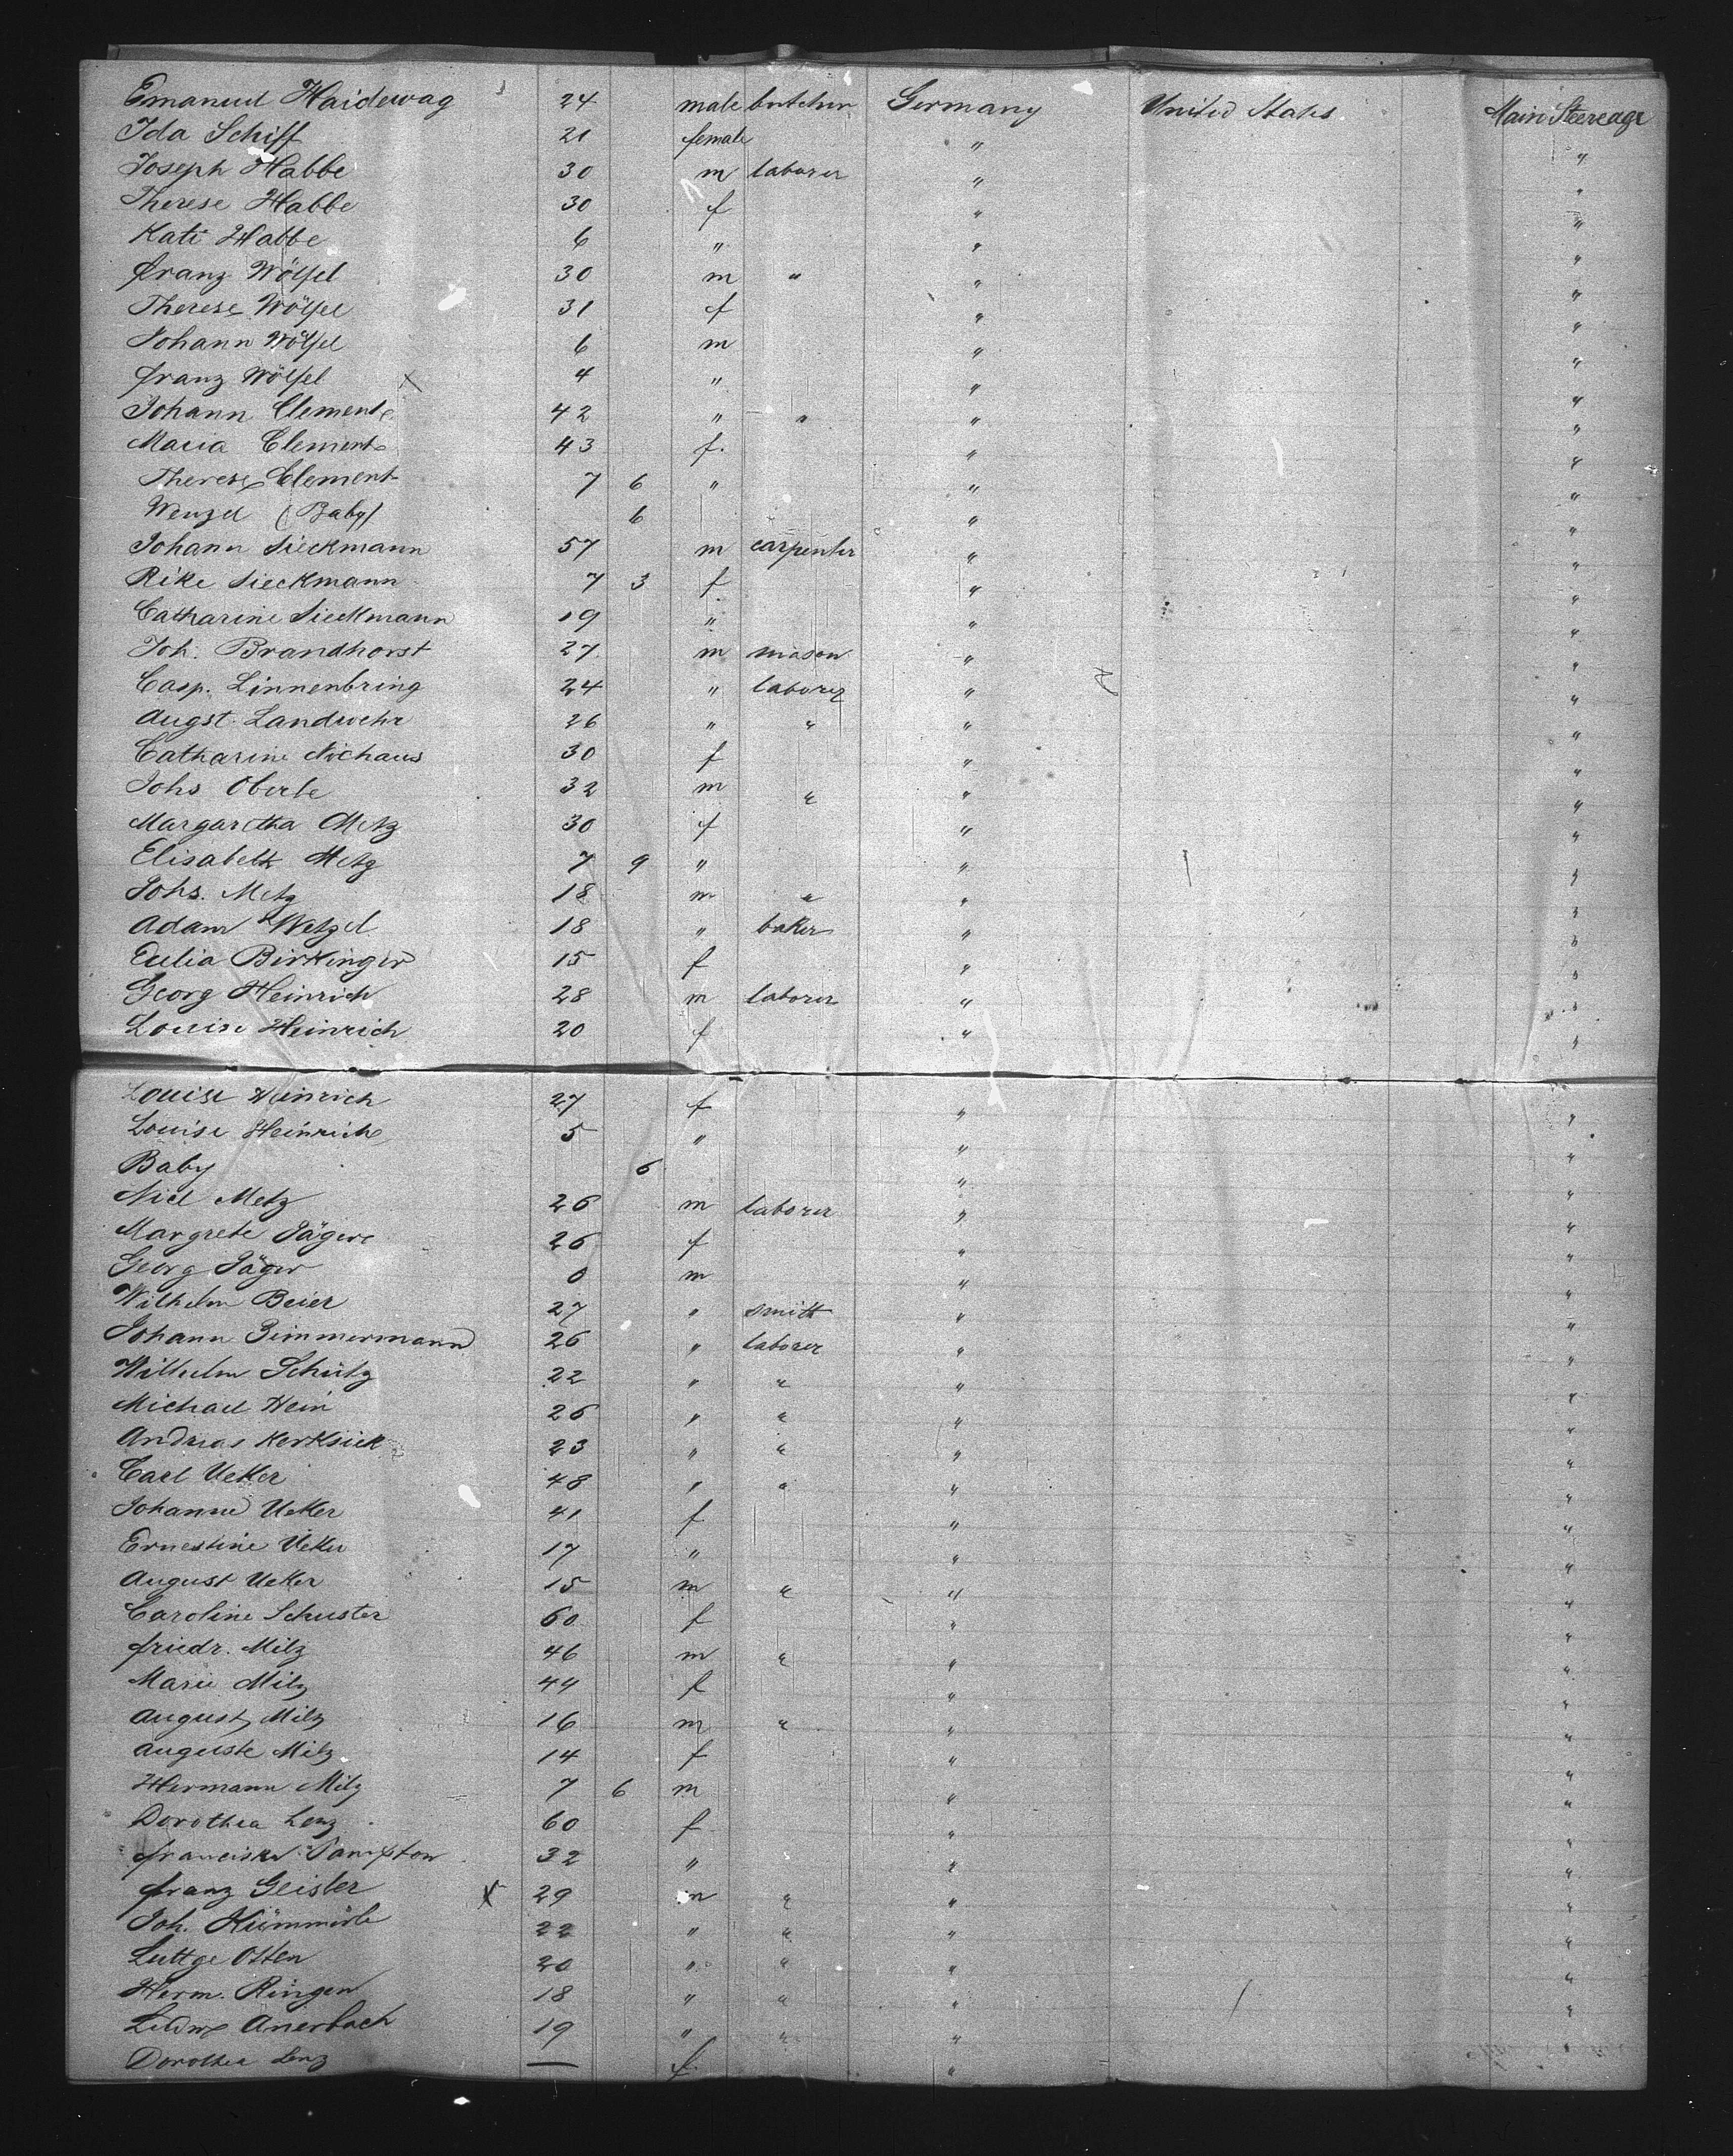 Emanuel Haidewag 24 male butcher Germany United States Main Steerage
Ida Schiff 21 female " "
Joseph Habbe 30 m laborer " "
Therese Habbe 30 f " "
Kati Habbe 6 " " "
Franz Wölfel 30 m " " "
Therese Wölfel 31 f " "
Johann Wölfel 6 m " "
Franz Wölfel x 4 " " "
Johann Clement 42 " " " "
Maria Clement 43 f. " "
Therese Clement 7 6 " " "
Wenzel (Baby) 6 " "
Johann Sieckmann 57 m carpenter " "
Rike Sieckmann 7 3 f " "
Catharine Sieckmann 19 " " "
Joh. Brandhorst 27 m mason " "
Casp. Linnenbring 24 " laborer " "
Augst. Landwehr 26 " " " "
Catharine Niehaus 30 f " "
Johs Oberle 32 m " " "
Margaretha Metz 30 f " "
Elisabeth Metz 7 9 " " "
Johs. Metz 18 m " " "
Adam Wetzel 18 " baker " "
Birkinger 15 f " "
Georg Heinrich 28 m laborer " "
Louise Heinrich 20 f " "
Louise Heinrich 27 f " "
Louise Heinrich 5 " " "
Baby 6 " "
Metz 26 m laborer " "
Margrete Jäger 26 f " "
Georg Jäger 0 m " "
Wilhelm Beier 27 " smith " "
Johann Zimmermann 26 " laborer " "
Wilhelm Schütz 22 " " " "
Michael Hein 26 " " " "
Andreas Kerksiek 23 " " " "
Carl Ueker 48 " " " "
Johanne Ueker 41 f " "
Ernestine Ueker 17 " " "
August Ueker 15 m " " "
Caroline Schuster 60 f " "
Friedr. Milz 46 m " " "
Marie Milz 44 f " "
August Milz 16 m " " "
Auguste Milz 14 f " "
Hermann Milz 7 6 m " "
Dorothea Lenz 60 f " "
Franciska 32 " " "
Franz Geisler x 29 m " " "
Joh. Kümmerle 22 " " " "
Luttge Otten 20 " " " "
Herm. Ringen 18 " " " "
Ludw Auerbach 19 " " " "
Dorothea Lenz — f "